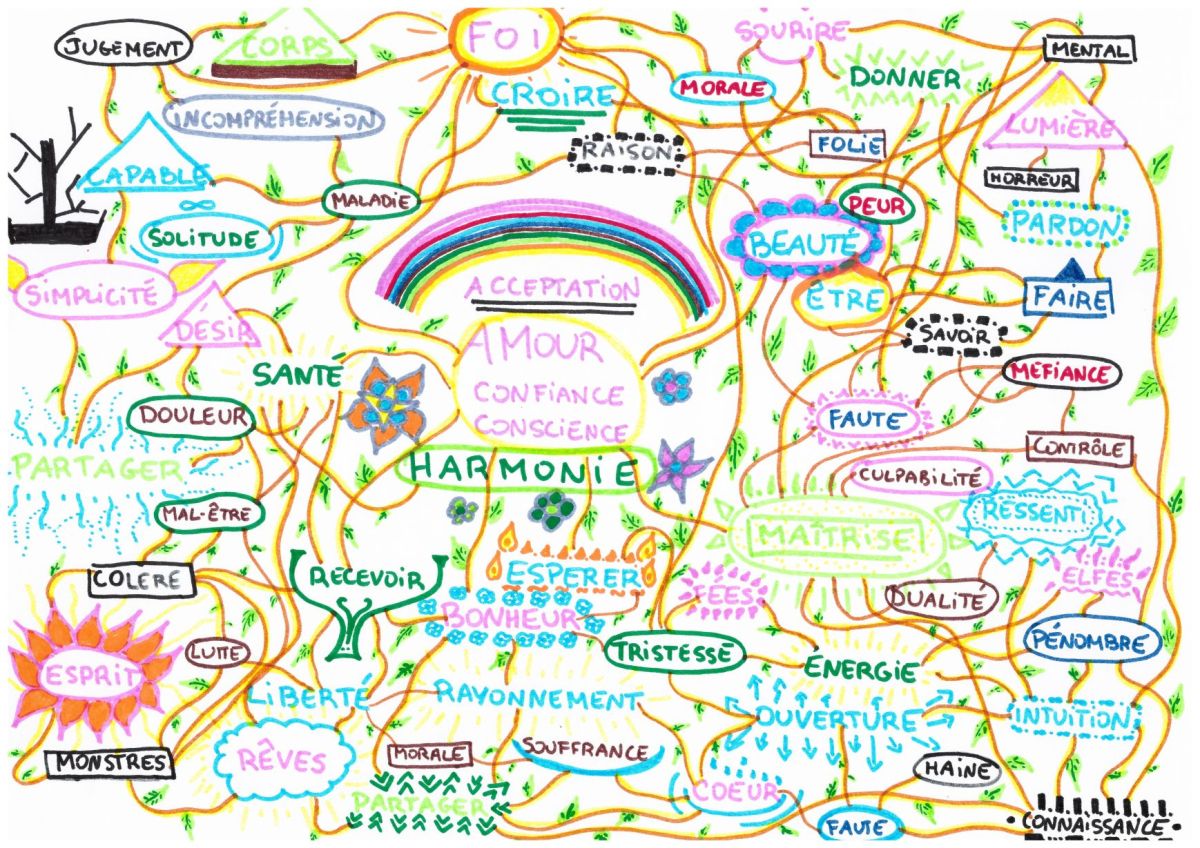 JUGEMENT
CORPS
FOI
SOURIRE
MENTAL
DONNER
CROIRE
MORALE
INCOMPRÉHENSION
LUMIÈRE
RAISON
FOLIE
CAPABLE
HORREUR
MALADIE
PEUR
PARDON
SOLITUDE
BEAUTÉ
SIMPLICITÉ
ACCEPTATION
ÊTRE
FAIRE
DÉSIR
SAVOIR
AMOUR
SANTÉ
MÉFIANCE
CONFIANCE
DOULEUR
FAUTE
CONSCIENCE
CONTRÔLE
PARTAGER
HARMONIE
CULPABILITÉ
MAL-ÊTRE
RESSENTI
MAÎTRISE
COLERE
RECEVOIR
ESPERER
ELFES
FÉES
DUALITÉ
BONHEUR
PÉNOMBRE
LUTTE
TRISTESSE
ÉNERGIE
ESPRIT
LIBERTÉ
RAYONNEMENT
OUVERTURE
INTUITION
MONSTRES
RÊVES
MORALE
SOUFFRANCE
HAINE
COEUR
PARTAGER
FAUTE
CONNAISSANCE